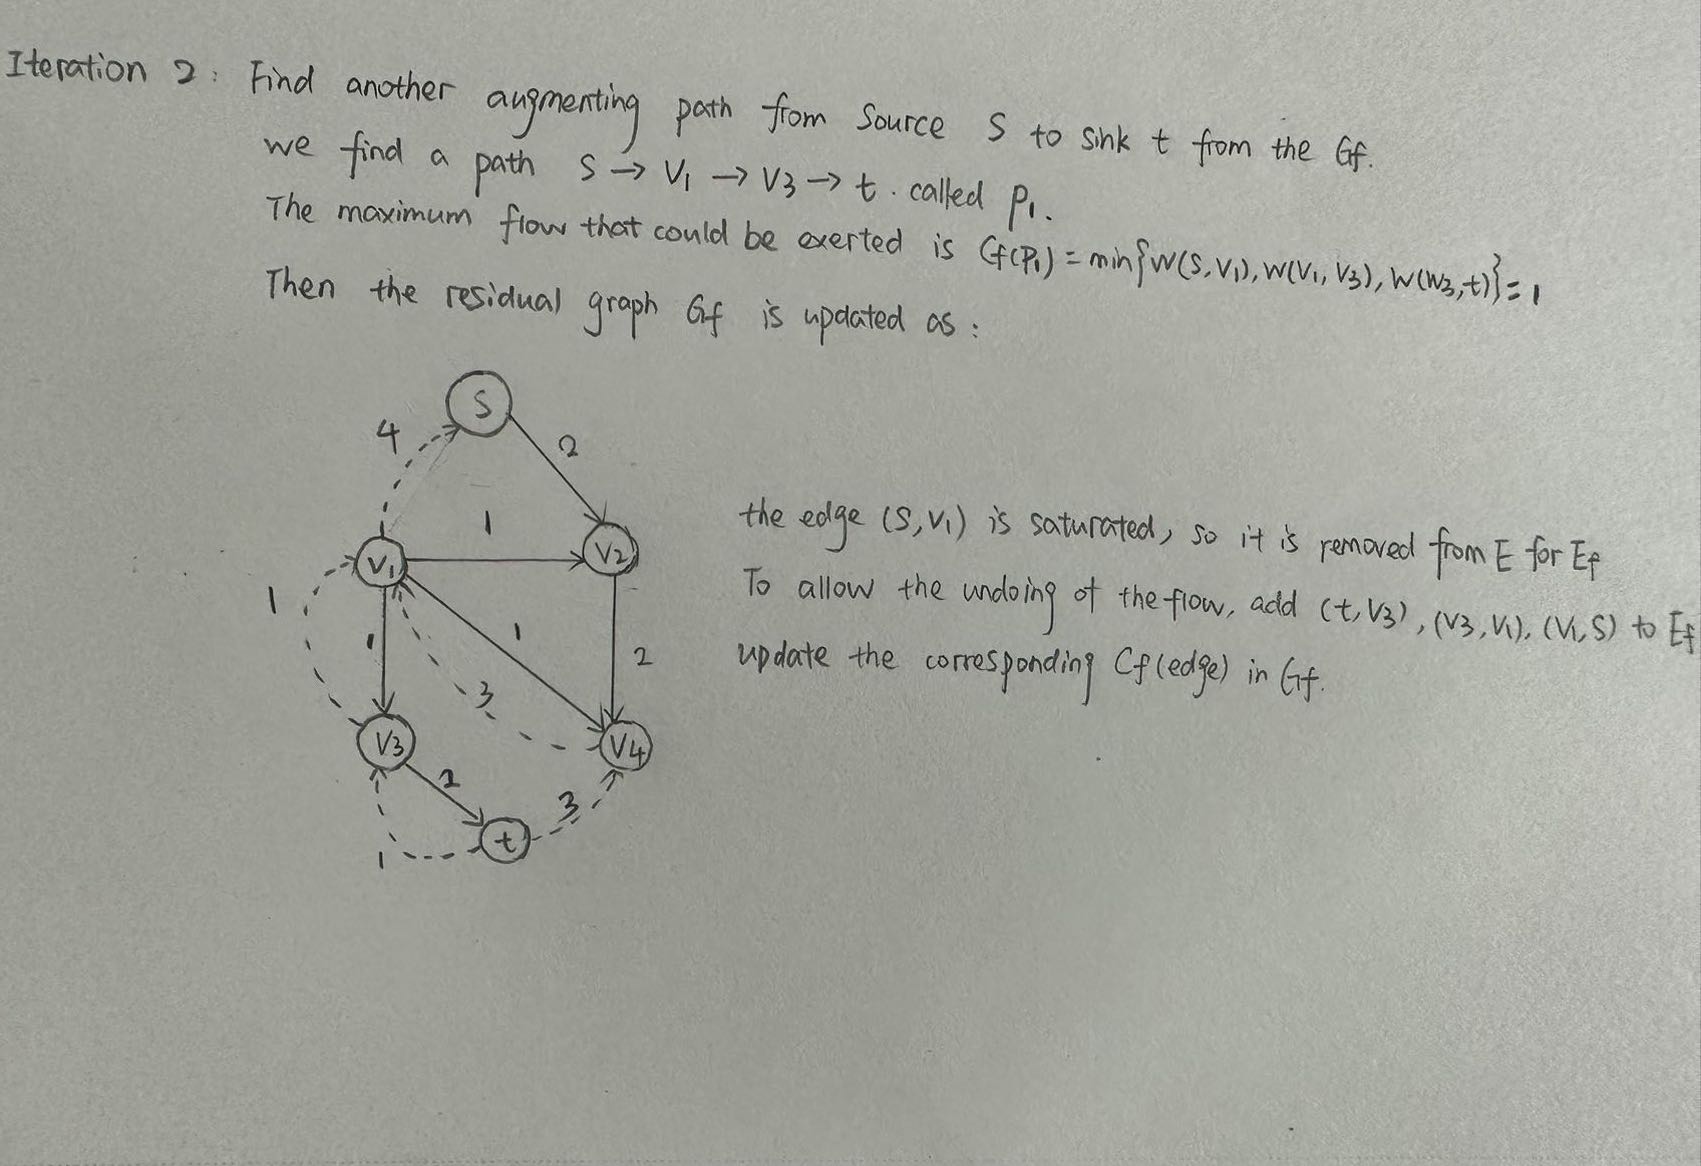 Iteration 2: Find another augmenting path from Source S to sink t from the Gf.
we find a path S → V1 → V3 → t. called P1.
The maximum flow that could be exerted is Cf(P1) = min{W(S,V1), W(V1,V3), W(W3,t)} = 1
Then the residual graph Gf is updated as:
S
4
2
1
V1
V2
the edge (S,V1) is saturated, so it is removed from E for Ef
To allow the undoing of the flow, add (t,V3), (V3,V1), (V1,S) to Ef
update the corresponding Cf(edge) in Gf.
1
1
1
2
3
V3
V4
2
3
t
1